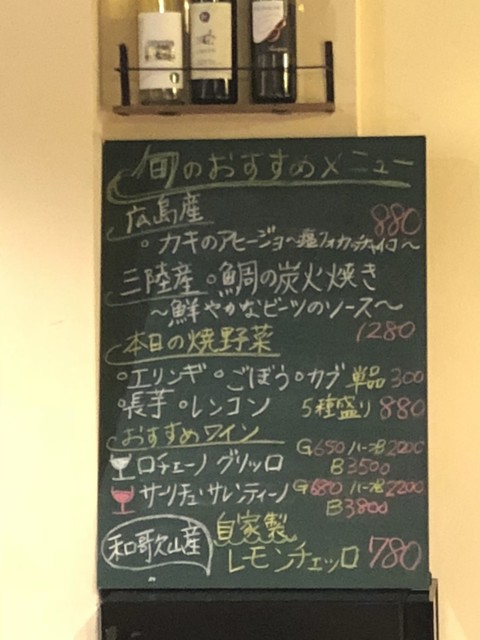 旬のおすすめメニュー
広島産 880
。カキのアヒージョ〜塩フォカッチャ付〜
三陸産。鯛の炭火焼き
〜鮮やかなビーツのソース〜
1280
本日の焼野菜
。エリンギ。ごぼう。カブ 単品300
。長芋。レンコン 5種盛り880
おすすめワイン
ロチェーノ グリッロ G650 ハーフ 2200
B3500
サーリチェ サレンティーノ G680 ハーフ 2200
B3800
和歌山産 自家製
レモンチェッロ 780